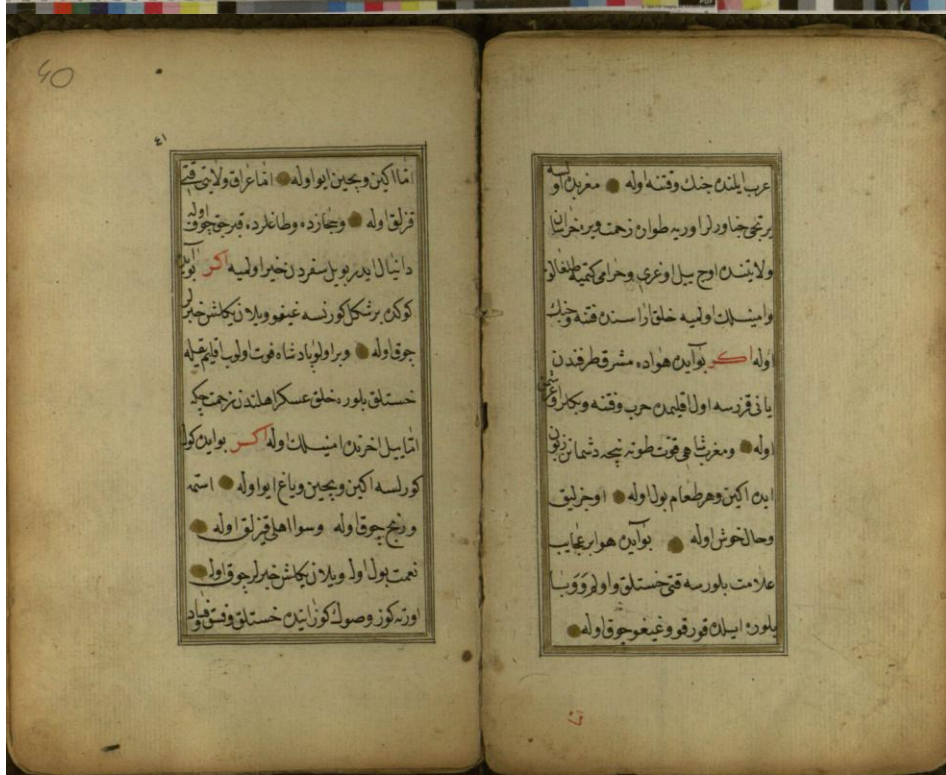 عرب ایلنده جنك وفتنه اوله مغربده اولسه
یرتجی جناورلر اوریه طوان زحمت ویره خراسان
ولایتنده اوج ییل اوغری وحرامی کتمیه
وامینلك اولمیه خلق اراسنده فتنه وجنك
اوله اکر بو آیده هواده مشرق طرفندن
یانی قزرسه اول اقلیمده حرب وفتنه
اوله ومغرب شاهی قوت طوته نیجه دشمانن زبون
ایده اکین وهر طعام بول اوله اوجزلیق
وحال خوش اوله بو آیده هوا بر عجایب
علامت بلورسه قتی خستلق واولر ووبا
بلوره ایلده قورقو وغیغو جوق اوله
40
٤١
امّا اکین وبچین ایو اوله امّا عراق ولایتی قتی
قزلق اوله وحجازده وطاغلرده قیرجق جوق اوله
دانیال ایدر بو ییل سفردن خیر اولمیه اکر بو آیده
کوکده بر شکل کورنسه غیغو ویلان یکلش خبرلر
جوق اوله وبر اولو پادشاه فوت اولوب اقلیم
خستلق بلوره خلق عسکر اهلندن زحمت چکه
امّا ییل اخرنده امینلك اوله اکر بو آیده کوك
کورلسه اکین وبچین وباغ ایو اوله استمه
ورنج چوق اوله وسوا اهلی قیزلق اوله
نعمت بول اوله ویلان یکلش خبرلر چوق اوله
اورته کوز وصوك کوز آینده خستلق وفسق وفساد